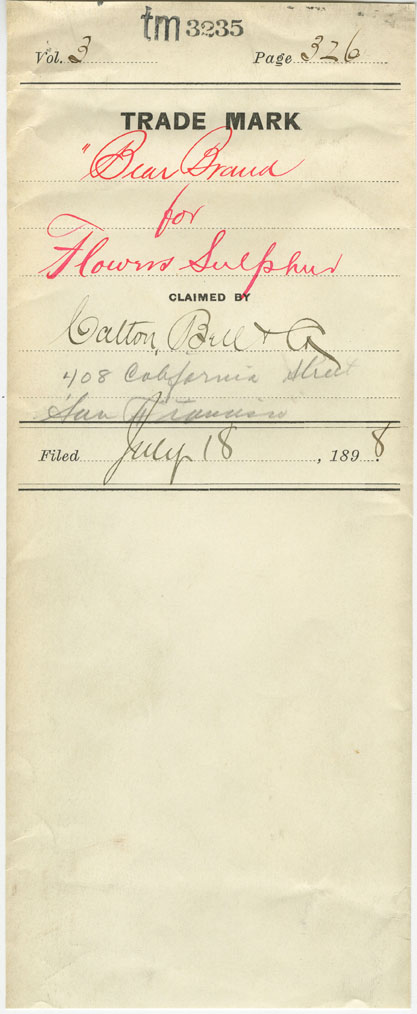 tm 3235
Vol. 3 Page 326
TRADE MARK
"Bear Brand
for
Flowers Sulphur
CLAIMED BY
Catton, Bell & Co
408 California Street
San Francisco
Filed July 18, 1898